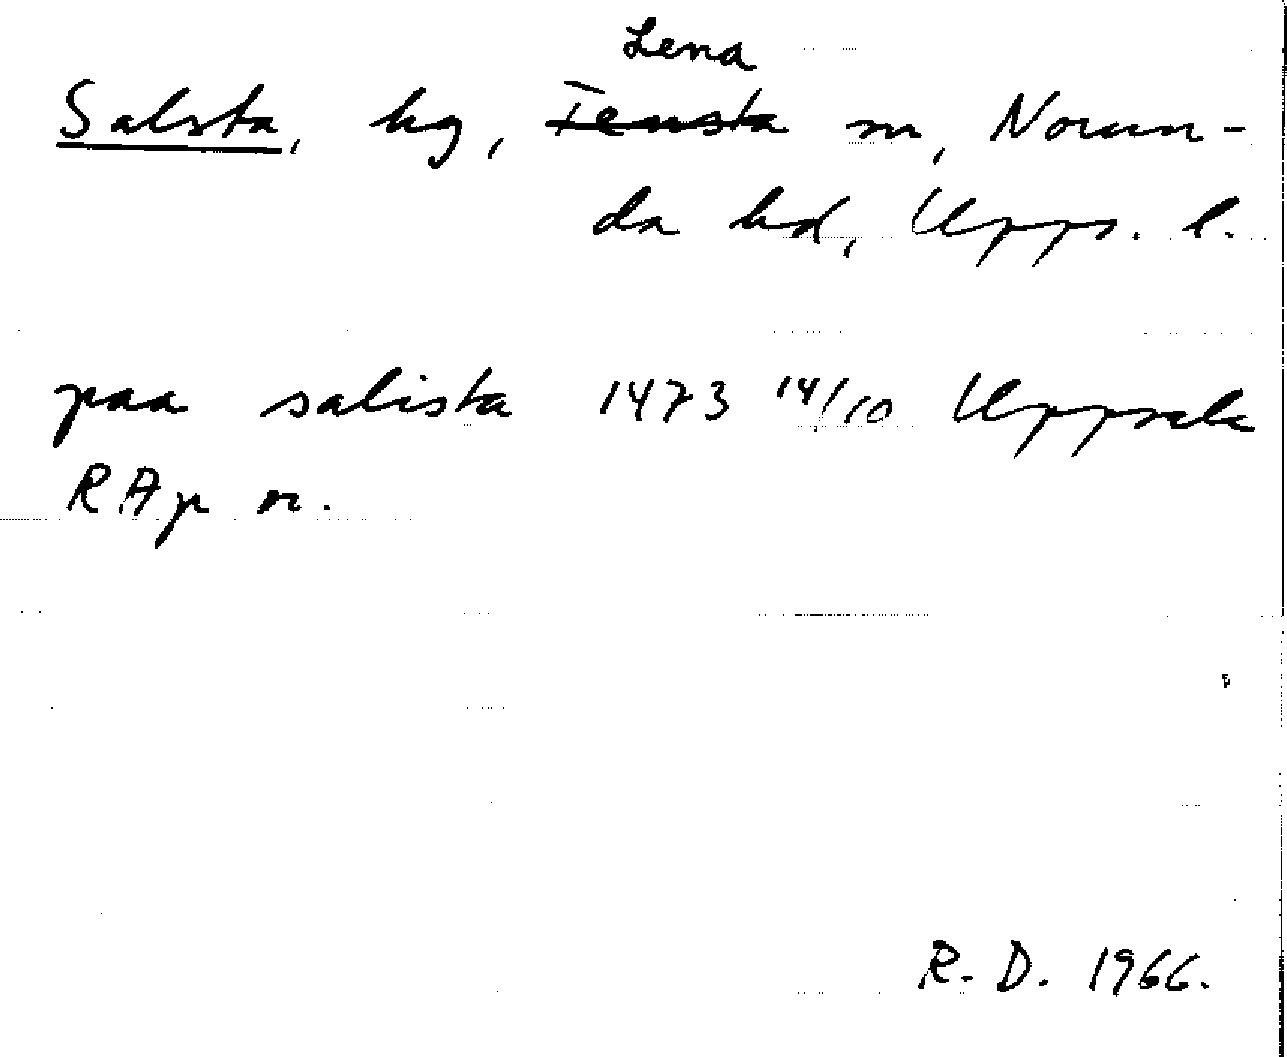 Lena
Salsta, hg, Tensta sn, Norun-
da hd, Upps. l.
paa salista 1473 14/10 Uppsala
RAp or.
R. D. 1966.